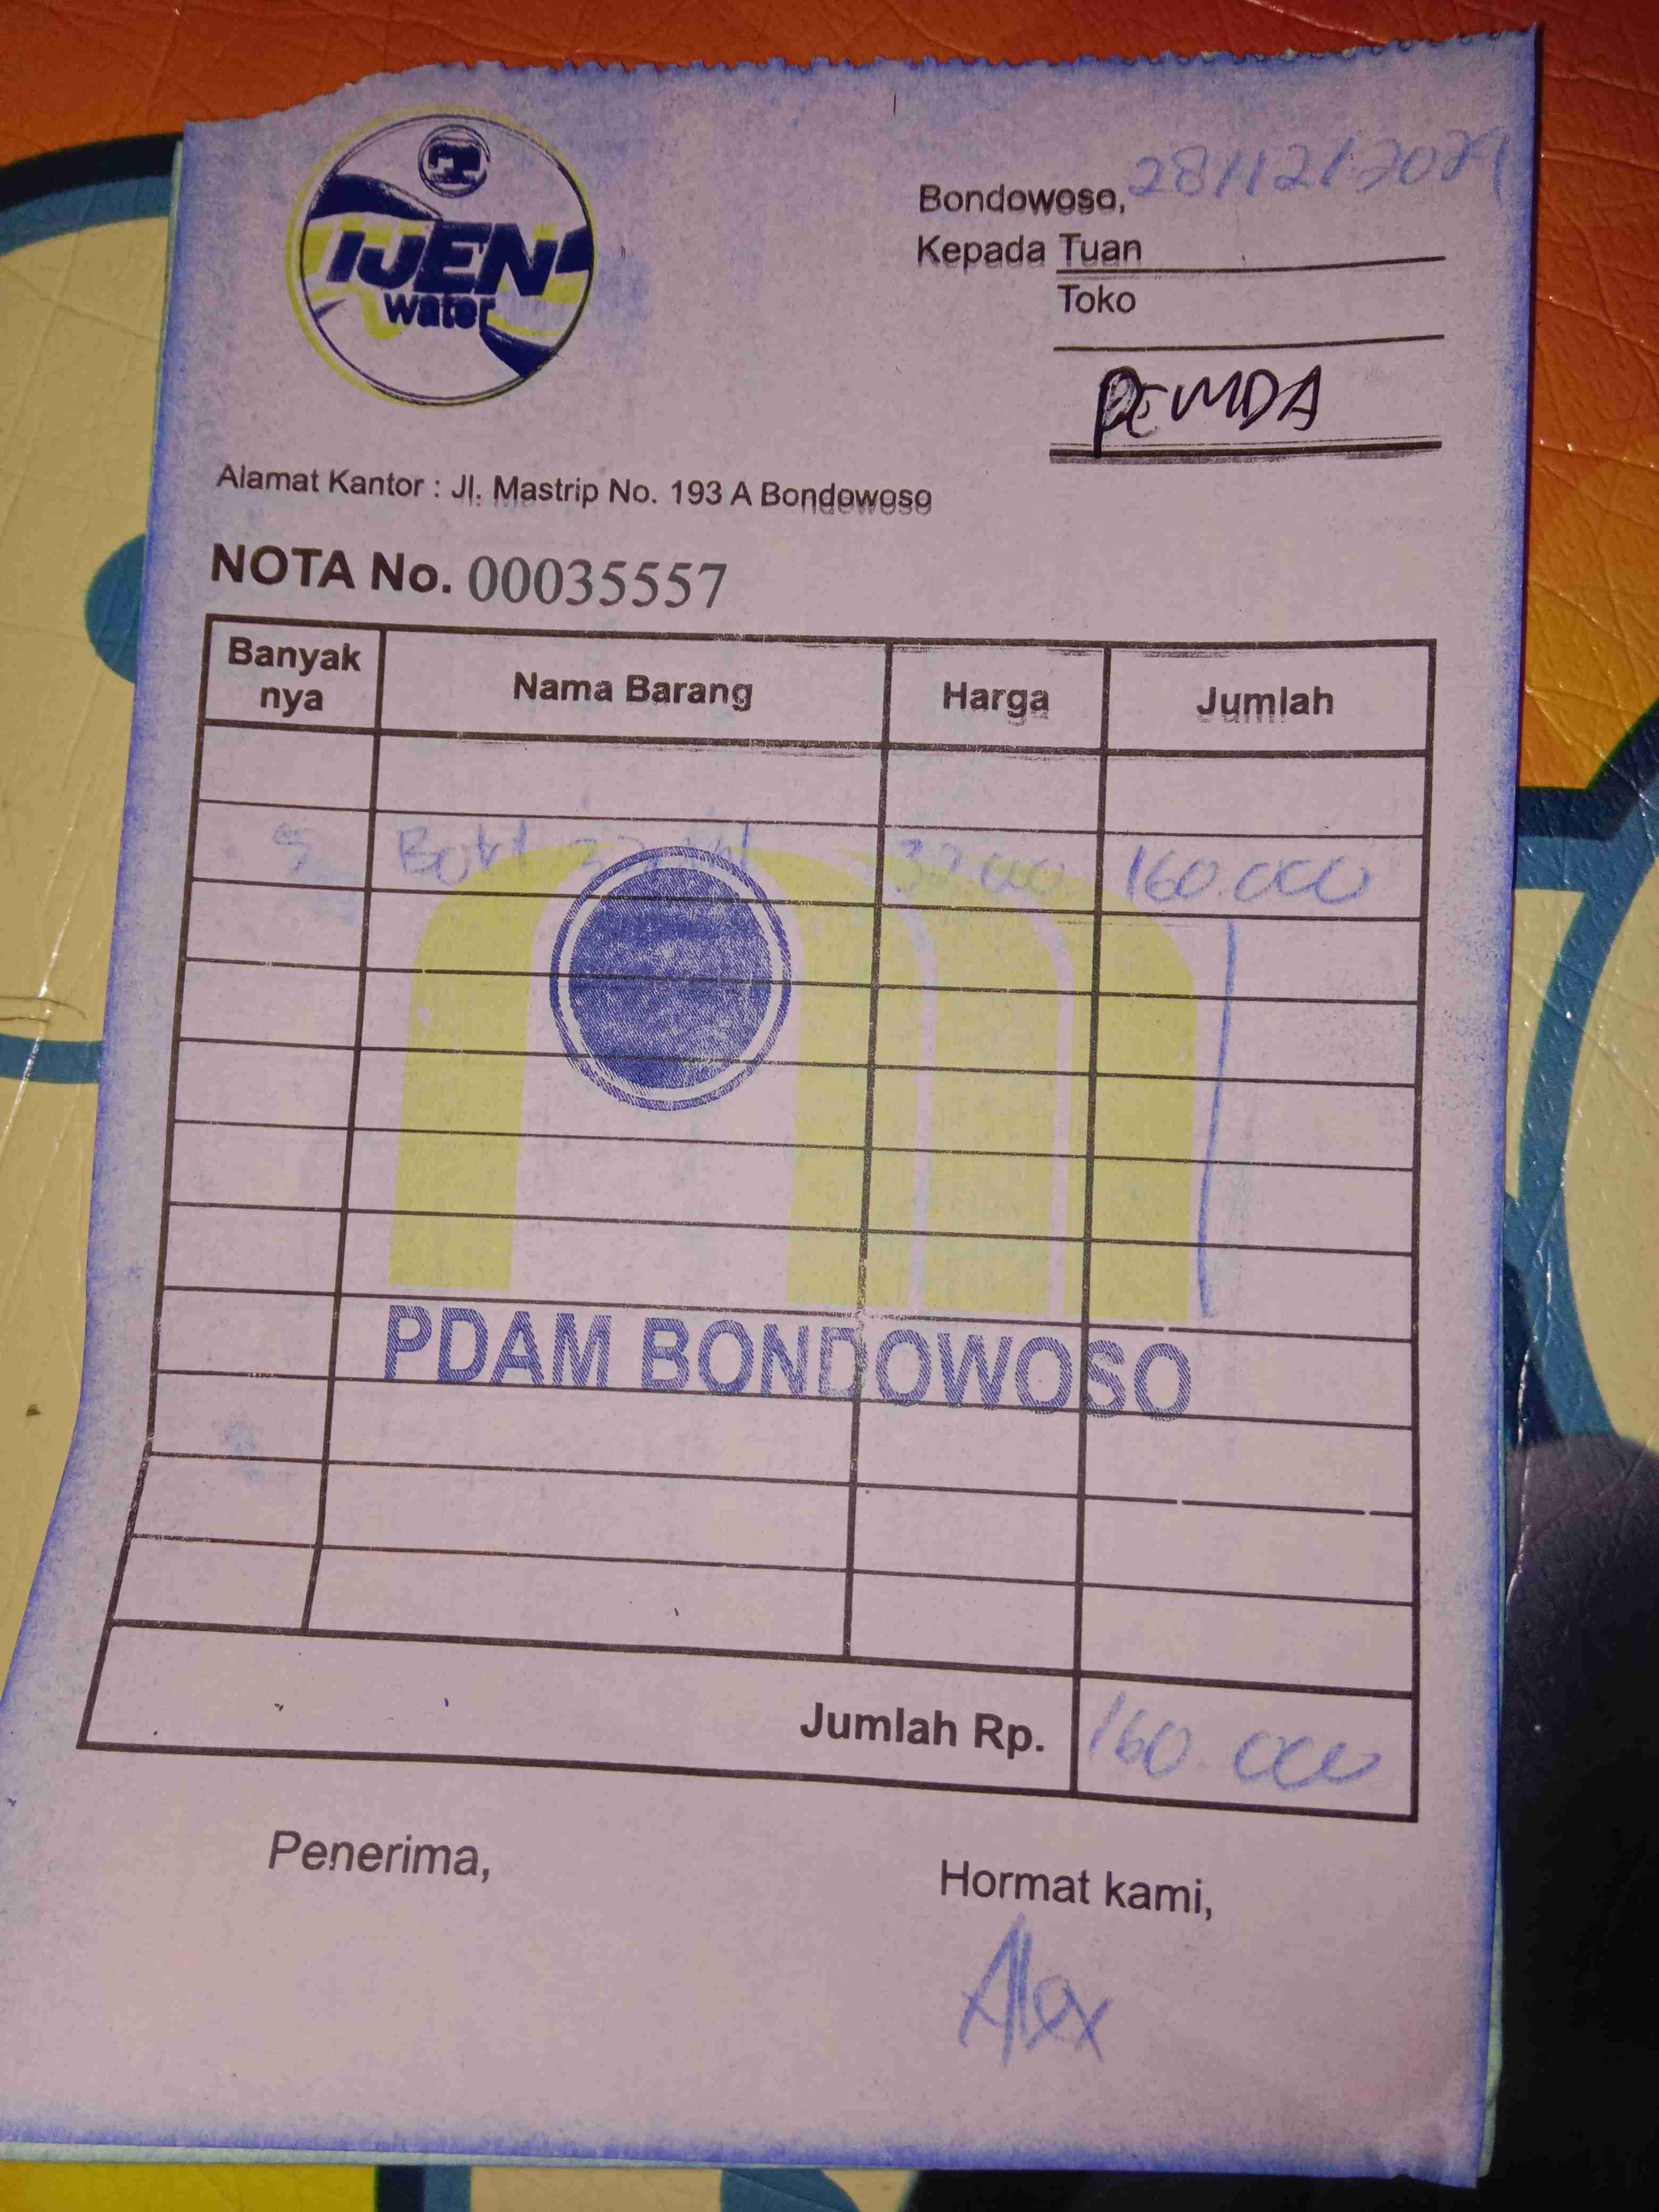 IJEN
water
Bondowoso, 28/12/2021
Kepada Tuan
Toko
PEMDA
Alamat Kantor : Jl. Mastrip No. 193 A Bondowoso
NOTA No. 00035557
Banyak nya Nama Barang Harga Jumlah
5 Botol 32.000 160.000
PDAM BONDOWOSO
Jumlah Rp. 160.000
Penerima, Hormat kami,
Alex